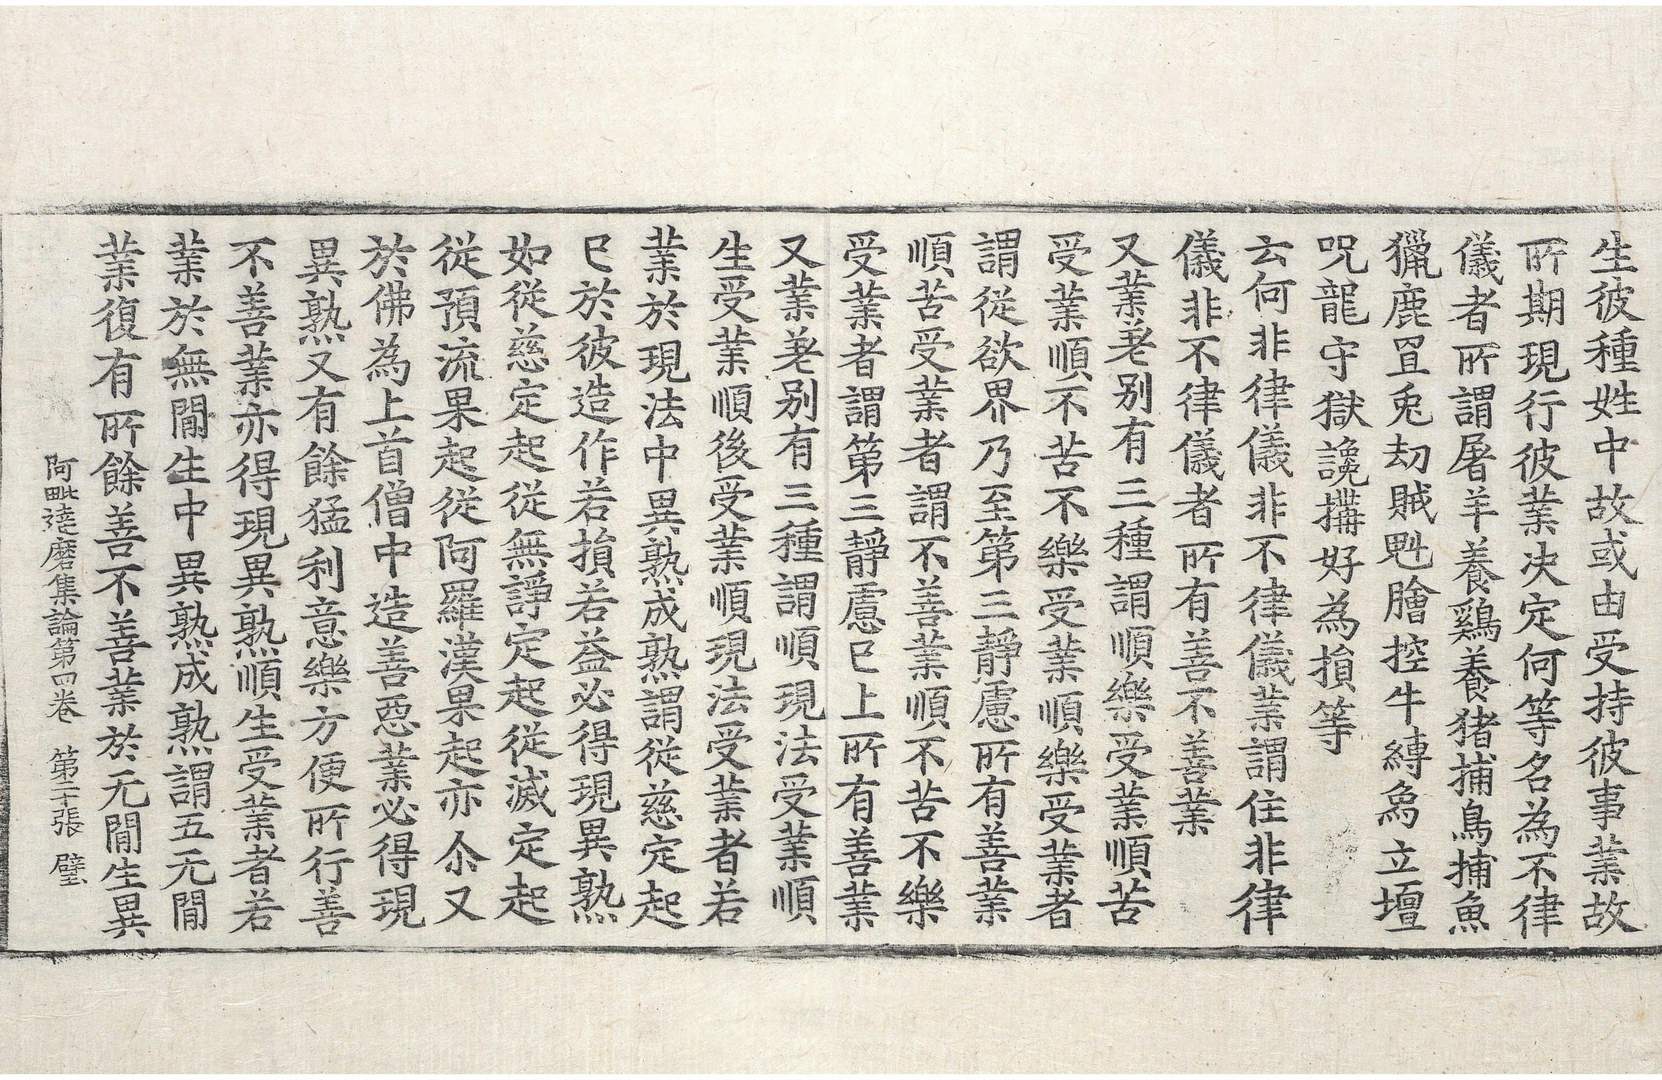 生彼種姓中故或由受持彼事業故
所期現行彼業决定何等名為不律
儀者所謂屠羊養鷄養猪捕鳥捕魚
獵鹿罝兔劫賊魁膾控牛縛象立壇
呪龍守獄讒搆好為損等
云何非律儀非不律儀業謂住非律
儀非不律儀者所有善不善業
又業差别有三種謂順樂受業順苦
受業順不苦不樂受業順樂受業者
謂從欲界乃至第三靜慮所有善業
順苦受業者謂不善業順不苦不樂
受業者謂第三靜慮已上所有善業
又業差别有三種謂順現法受業順
生受業順後受業順現法受業者若
業於現法中異熟成熟謂從慈定起
已於彼造作若損若益必得現異熟
如從慈定起從無諍定起從滅定起
從預流果起從阿羅漢果起亦尒又
於佛為上首僧中造善惡業必得現
異熟又有餘猛利意樂方便所行善
不善業亦得現異熟順生受業者若
業於無閒生中異熟成熟謂五无閒
業復有所餘善不善業於无閒生異
阿毗達磨集論第四卷 第二十張 璧